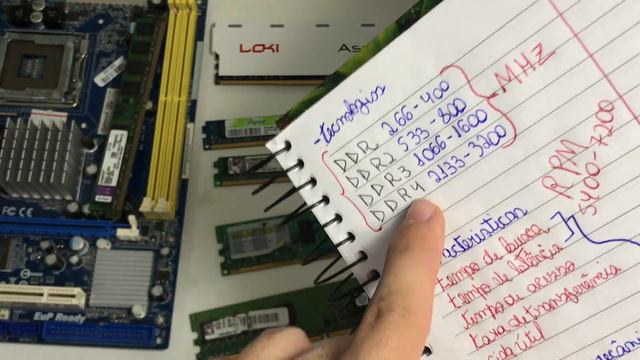 LOKI
As
FC CE
EuP Ready
-tecnologias
DDR 266-400
DDR2 533-800
DDR3 1066-1600
DDR4 2133-3200
MHZ
RPM
5400-7200
racteristicas
tempo de busca
tempo de latência
tempo de acesso
taxa de transferência